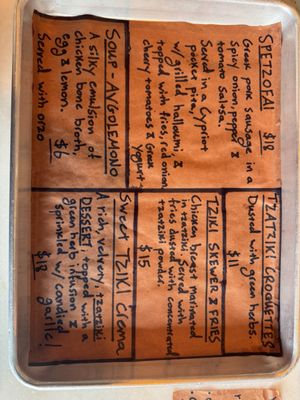 SPETZOFAI $18
Greek pork sausage in a
spicy onion, pepper &
tomato salsa.
Served in a Cypriot
pocket pita,
w/ grilled halloumi &
topped with fries, red onion,
cherry tomatoes & Greek
yogurt.
SOUP - AVGOLEMONO
A silky emulsion of
chicken bone broth,
egg & lemon.
$6
Served with orzo
TZATZIKI CROQUETTES
Dusted with green herbs.
$11
TZIKI SKEWER & FRIES
Chicken breast marinated
in tzatziki served with
fries dusted with concentrated
tzatziki powder.
$15
Sweet TZIKI Crema
A rich, velvety tzatziki
DESSERT topped with a
green herb infusion &
sprinkled w/ candied
garlic!
$18